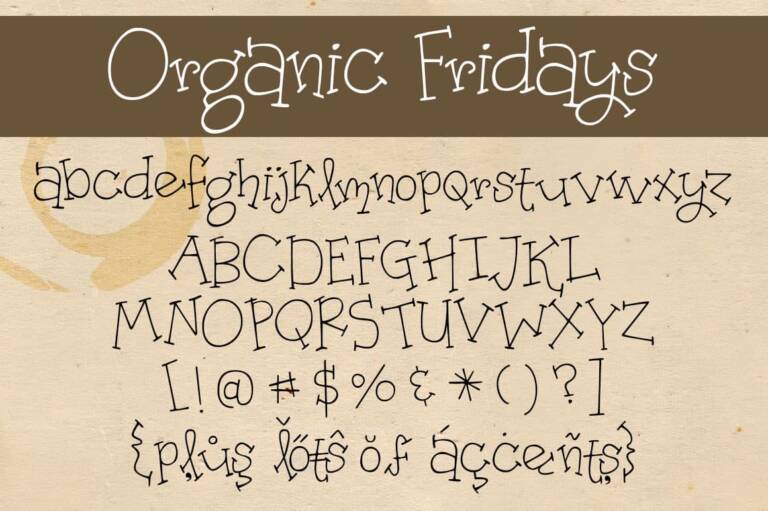 Organic Fridays
abcdefghijklmnopqrstuvwxyz
ABCDEFGHIJKL
MNOPQRSTUVWXYZ
[!@#$%&*()?]
{pļůş ľőŧŝ ŏf áçċeñțș}